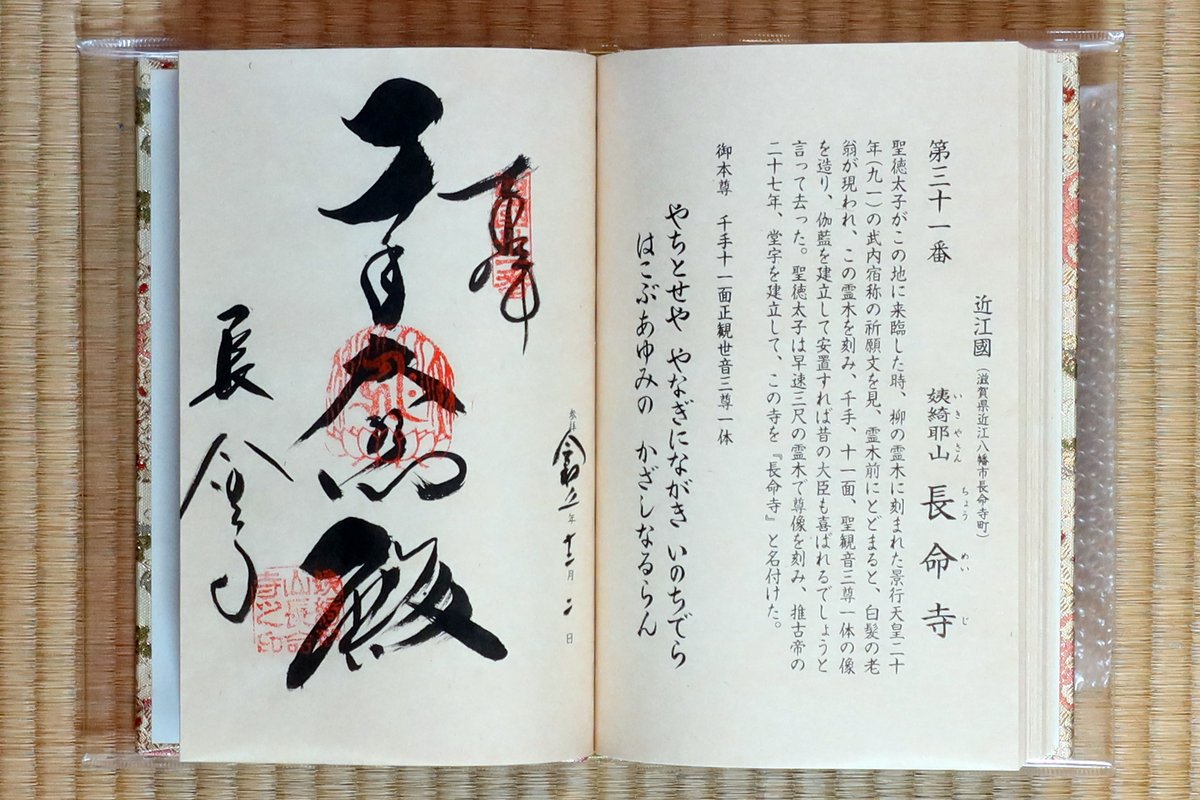 近江國(滋賀県近江八幡市長命寺町)
第三十一番 姨綺耶山 長命寺
いきやさん ちょうめいじ
聖徳太子がこの地に来臨した時、柳の霊木に刻まれた景行天皇二十
年(九一)の武内宿称の祈願文を見、霊木前にとどまると、白髪の老
翁が現われ、この霊木を刻み、千手、十一面、聖観音三尊一体の像
を造り、伽藍を建立して安置すれば昔の大臣も喜ばれるでしょうと
言って去った。聖徳太子は早速三尺の霊木で尊像を刻み、推古帝の
二十七年、堂宇を建立して、この寺を『長命寺』と名付けた。
御本尊 千手十一面正観世音三尊一休
やちとせや やなぎにながき いのちでら
はこぶあゆみの かざしなるらん
参拝 令和五年十二月二日
奉拝
千手大悲殿
長命寺